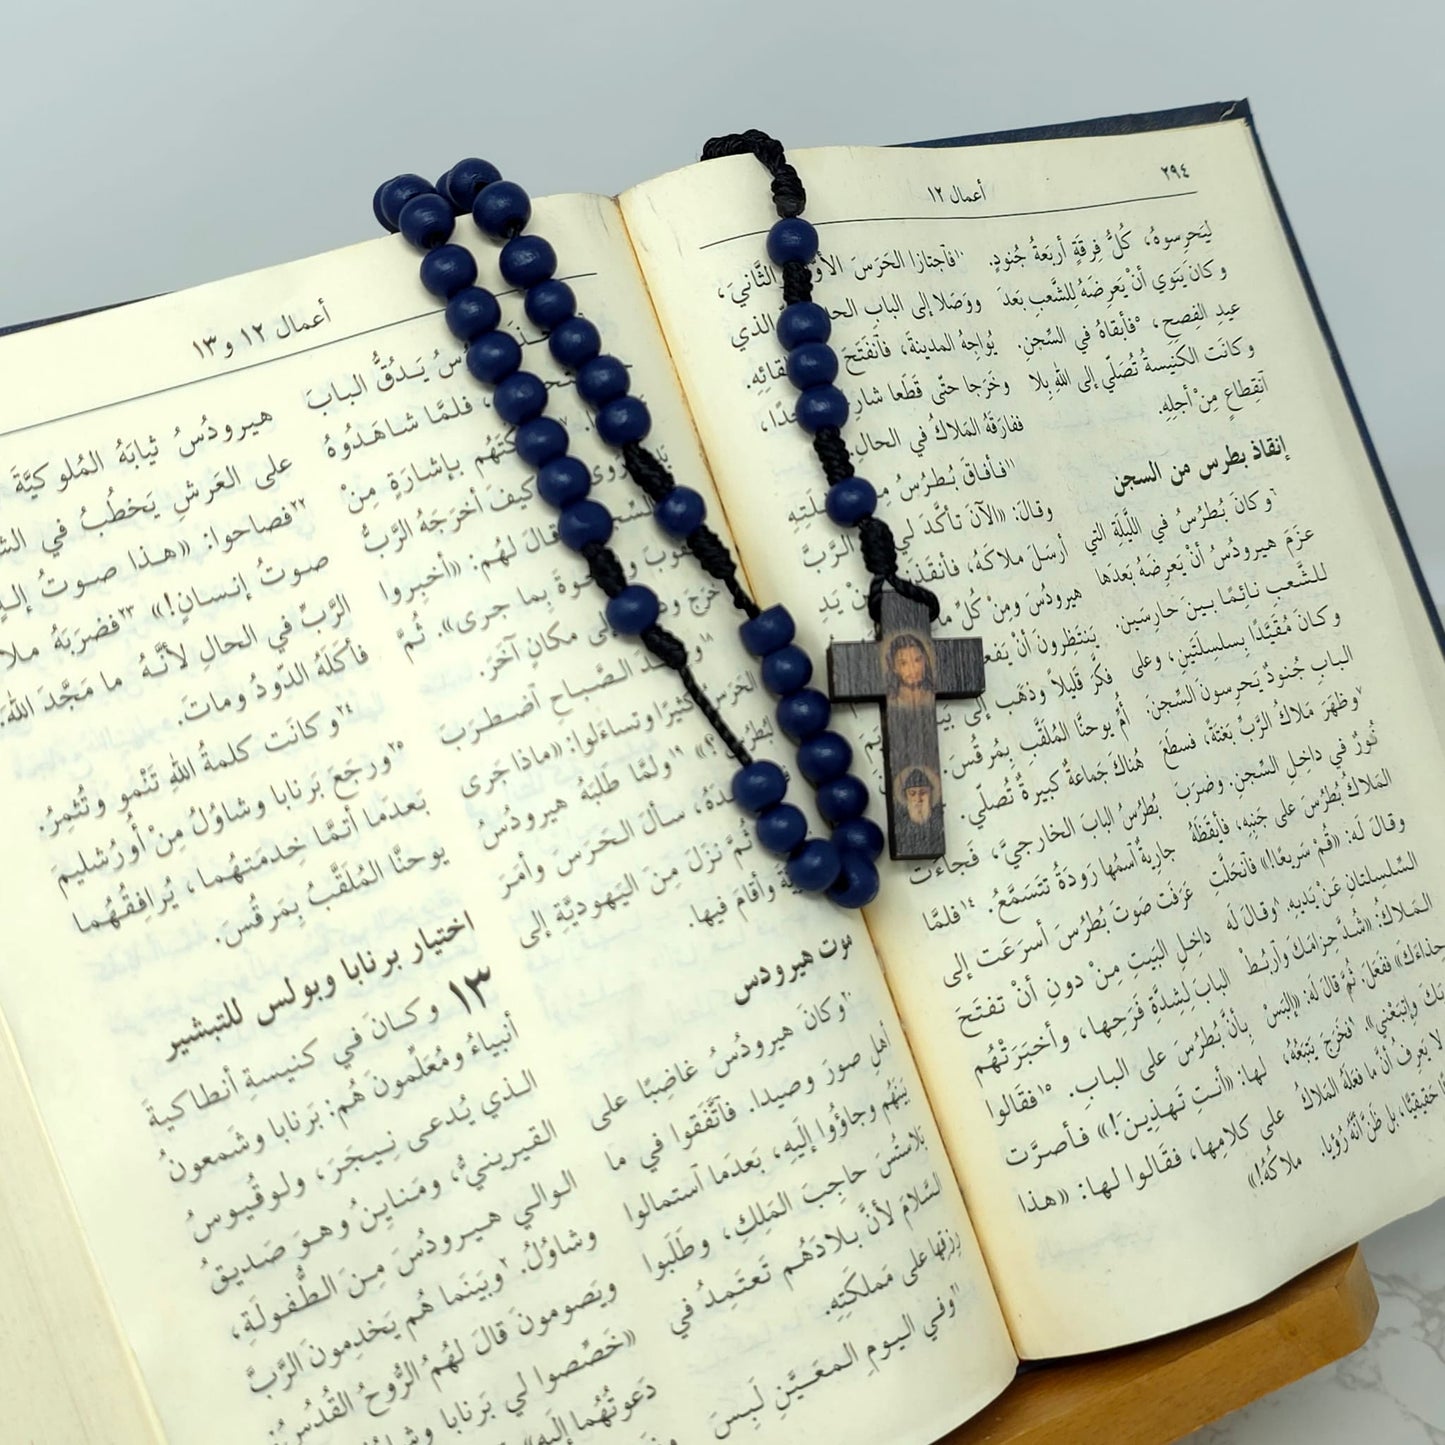 ٢٩٤
أعمال ١٢
لِيَحرِسوهُ، كُلُّ فِرقَةٍ أربَعةُ جُنودٍ.
وكانَ يَنوي أنْ يَعرِضَهُ لِلشَّعبِ بَعدَ
عيدِ الفِصحِ، °فأبقاهُ في السِّجنِ.
وكانَت الكَنيسةُ تُصَلّي إلى اللهِ بِلا
اَنقِطاعٍ مِنْ أجلِهِ.
إنقاذ بطرس من السجن
٦وكانَ بُطرُسُ في اللَّيلَةِ التي
عزَمَ هيرودُسُ أنْ يَعرِضَهُ بَعدَها
للشَّعبِ نائِمًا بـينَ حارِسَينِ.
وكانَ مُقَيَّدًا بِسلسِلَتَينِ، وعلى
البابِ جُنودٌ يَحرِسونَ السِّجنَ.
٧وظهَرَ مَلاكُ الرَّبِّ بَغتَةً، فسطَعَ
نُورٌ في داخِلِ السِّجنِ. وضرَبَ
المَلاكُ بُطرُسَ على جَنبِهِ، فأيقَظَهُ
وقالَ لَه: «قُمْ سَريعًا!» فاَنحَلَّتِ
السِّلسِلتانِ عَنْ يَديهِ. ٨وقالَ لَه
المَلاكُ: «شُدَّ حِزامَكَ واَربُطْ
حِذاءَكَ» ففَعَلَ. ثُمَّ قالَ لَه: «إلبَسْ
واتبَعْني». ٩فخَرَجَ يَتبَعُهُ،
لا يَعرِفُ أنَّ ما فعَلَهُ المَلاكُ
حَقيقيًّا، بل ظَنَّ أنَّهُ رُؤيا.
١٠فاَجتازا الحَرَسَ الثَّانيَ،
ووَصَلا إلى البابِ الذي
يُواجِهُ المدينةَ، فاَنفَتَحَ
وخَرَجا حتّى قَطَعا
ففارَقَهُ المَلاكُ في الحالِ.
١١فأفاقَ بُطرُسُ
وقالَ: «الآنَ تأكَّدَ لي الرَّبَّ
أرسَلَ ملاكَهُ، فأنقَذَني يَدِ
هيرودُسَ ومِنْ كُلِّ
يَنتَظِرونَ أنْ
فكَّر قليلاً وذهَب إلى
أُمِّ يوحنَّا المُلقَّبِ بِمَرقُسَ.
هُناكَ جَماعةٌ كبيرةٌ تُصلّي.
بُطرُسُ البابَ الخارجيَّ، فَجاءَت
جارِيةٌ اَسمُها رَودَةُ تتَسَمَّعُ. ١٤فلمَّا
عَرَفَت صَوتَ بُطرُسَ أسرَعَت إلى
داخِلِ البَيتِ مِنْ دونِ أنْ تفتَحَ
البابَ لِشِدَّةِ فَرَحِها، وأخبَرَتْهُم
بأنَّ بُطرُسَ على البابِ. ١٥فقالوا
لها: «أنتِ تَهذِينَ!» فأصرَّت
على كلامِها، فقالوا لها: «هذا
ملاكُهُ!»
أعمال ١٢ و ١٣
يَدُقُّ البابَ
، فلمَّا شاهَدُوهُ
بإشارَةٍ مِنْ
كيفَ أخرَجَهُ الرَّبُّ
قالَ لهُم: «أخبِروا
بِما جرى». ثُمَّ
خرَجَ إلى مكانٍ آخَرَ.
١٨ الصَّباحِ اَضطرَبَ
كثيرًا وتساءَلوا: «ماذا جَرى
١٩ولمَّا طَلبَهُ هيرودُسُ
، سألَ الحَرَسَ وأمَرَ
ثُمَّ نزَلَ مِنَ اليَهوديَّةِ إلى
وأقامَ فيها.
موت هيرودس
٢٠وكانَ هيرودُسُ غاضِبًا على
أهلِ صورَ وصيدا. فاَتَّفَقوا في ما
بَينَهُم وجاؤُوا إلَيهِ، بَعدَما اَستمالوا
بَلاستُسَ حاجِبَ المَلِكِ، وطَلَبوا
السَّلامَ لأنَّ بلادَهُم تَعتَمِدُ في
رِزقِها على مَملكَتِهِ.
٢١وفي اليومِ المعَيَّنِ لَبِسَ
هيرودُسُ ثيابَهُ المُلوكيَّةَ
على العَرشِ يَخطُبُ في
٢٢فصاحوا: «هذا صوتُ
صوتُ إنسانٍ!» ٢٣فضرَبَهُ
الرَّبِّ في الحالِ لأنَّهُ ما مَجَّدَ اللهَ.
فأكَلَهُ الدّودُ وماتَ.
٢٤وكانَت كلمةُ اللهِ تَنْمو وتُثمِرُ.
٢٥ورجَعَ بَرنابا وشاوُلُ مِنْ أُورُشليمَ
بَعدَما أتمَّا خِدمَتهُما، يُرافِقُهُما
يوحنَّا المُلَقَّبُ بِمَرقُسَ.
اختيار برنابا وبولس للتبشير
١٣ وكانَ في كنيسةِ أنطاكيةَ
أنبياءُ ومُعَلِّمونَ هُم: بَرنابا وشَمعونُ
الذي يُدعى نِيجَرَ، ولوقُيوسُ
القيرينيُّ، ومَنايِنُ وهوَ صَديقُ
الوالي هيرودُسَ مِنَ الطُّفولَةِ،
وشاوُلُ. ٢وبَينَما هُم يَخدِمونَ الرَّبَّ
ويَصومونَ قالَ لهُمُ الرُّوحُ القُدُسُ:
«خَصِّصوا لي بَرنابا
دَعوتُهُما إلَيهِ»